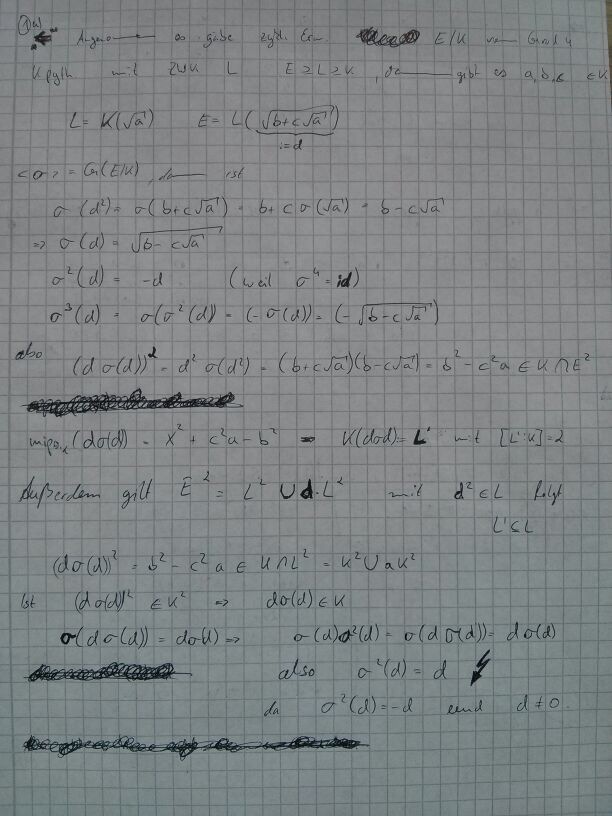 1) a)
"⇐" es gäbe zykl. Erw. E/K vom Grad 4
K pyth mit ZWK L E ≥ L ≥ K, gibt es a, b, c ∈ K
L = K(√a) E = L(√(b+c√a))
:= d
<σ> = G(E/K), ist
σ(d²) = σ(b+c√a) = b + c σ(√a) = b - c√a
⇒ σ(d) = √(b - c√a)
σ²(d) = -d (weil σ⁴ = id)
σ³(d) = σ(σ²(d)) = (-σ(d)) = (-√(b-c√a))
also (d σ(d))² = d² σ(d²) = (b+c√a)(b-c√a) = b² - c²a ∈ K ∩ E²
mipo (dσ(d)) = X² + c²a - b² K(dσd) = L' mit [L':K] = 2
Außerdem gilt E² = L² ∪ d·L² mit d² ∈ L folgt
L' ⊆ L
(dσ(d))² = b² - c²a ∈ K ∩ L² = K² ∪ aK²
Ist (dσ(d))² ∈ K² ⇒ dσ(d) ∈ K
σ(dσ(d)) = dσ(d) ⇒ σ(d)σ²(d) = σ(dσ(d)) = dσ(d)
also σ²(d) = d
da σ²(d) = -d und d ≠ 0.